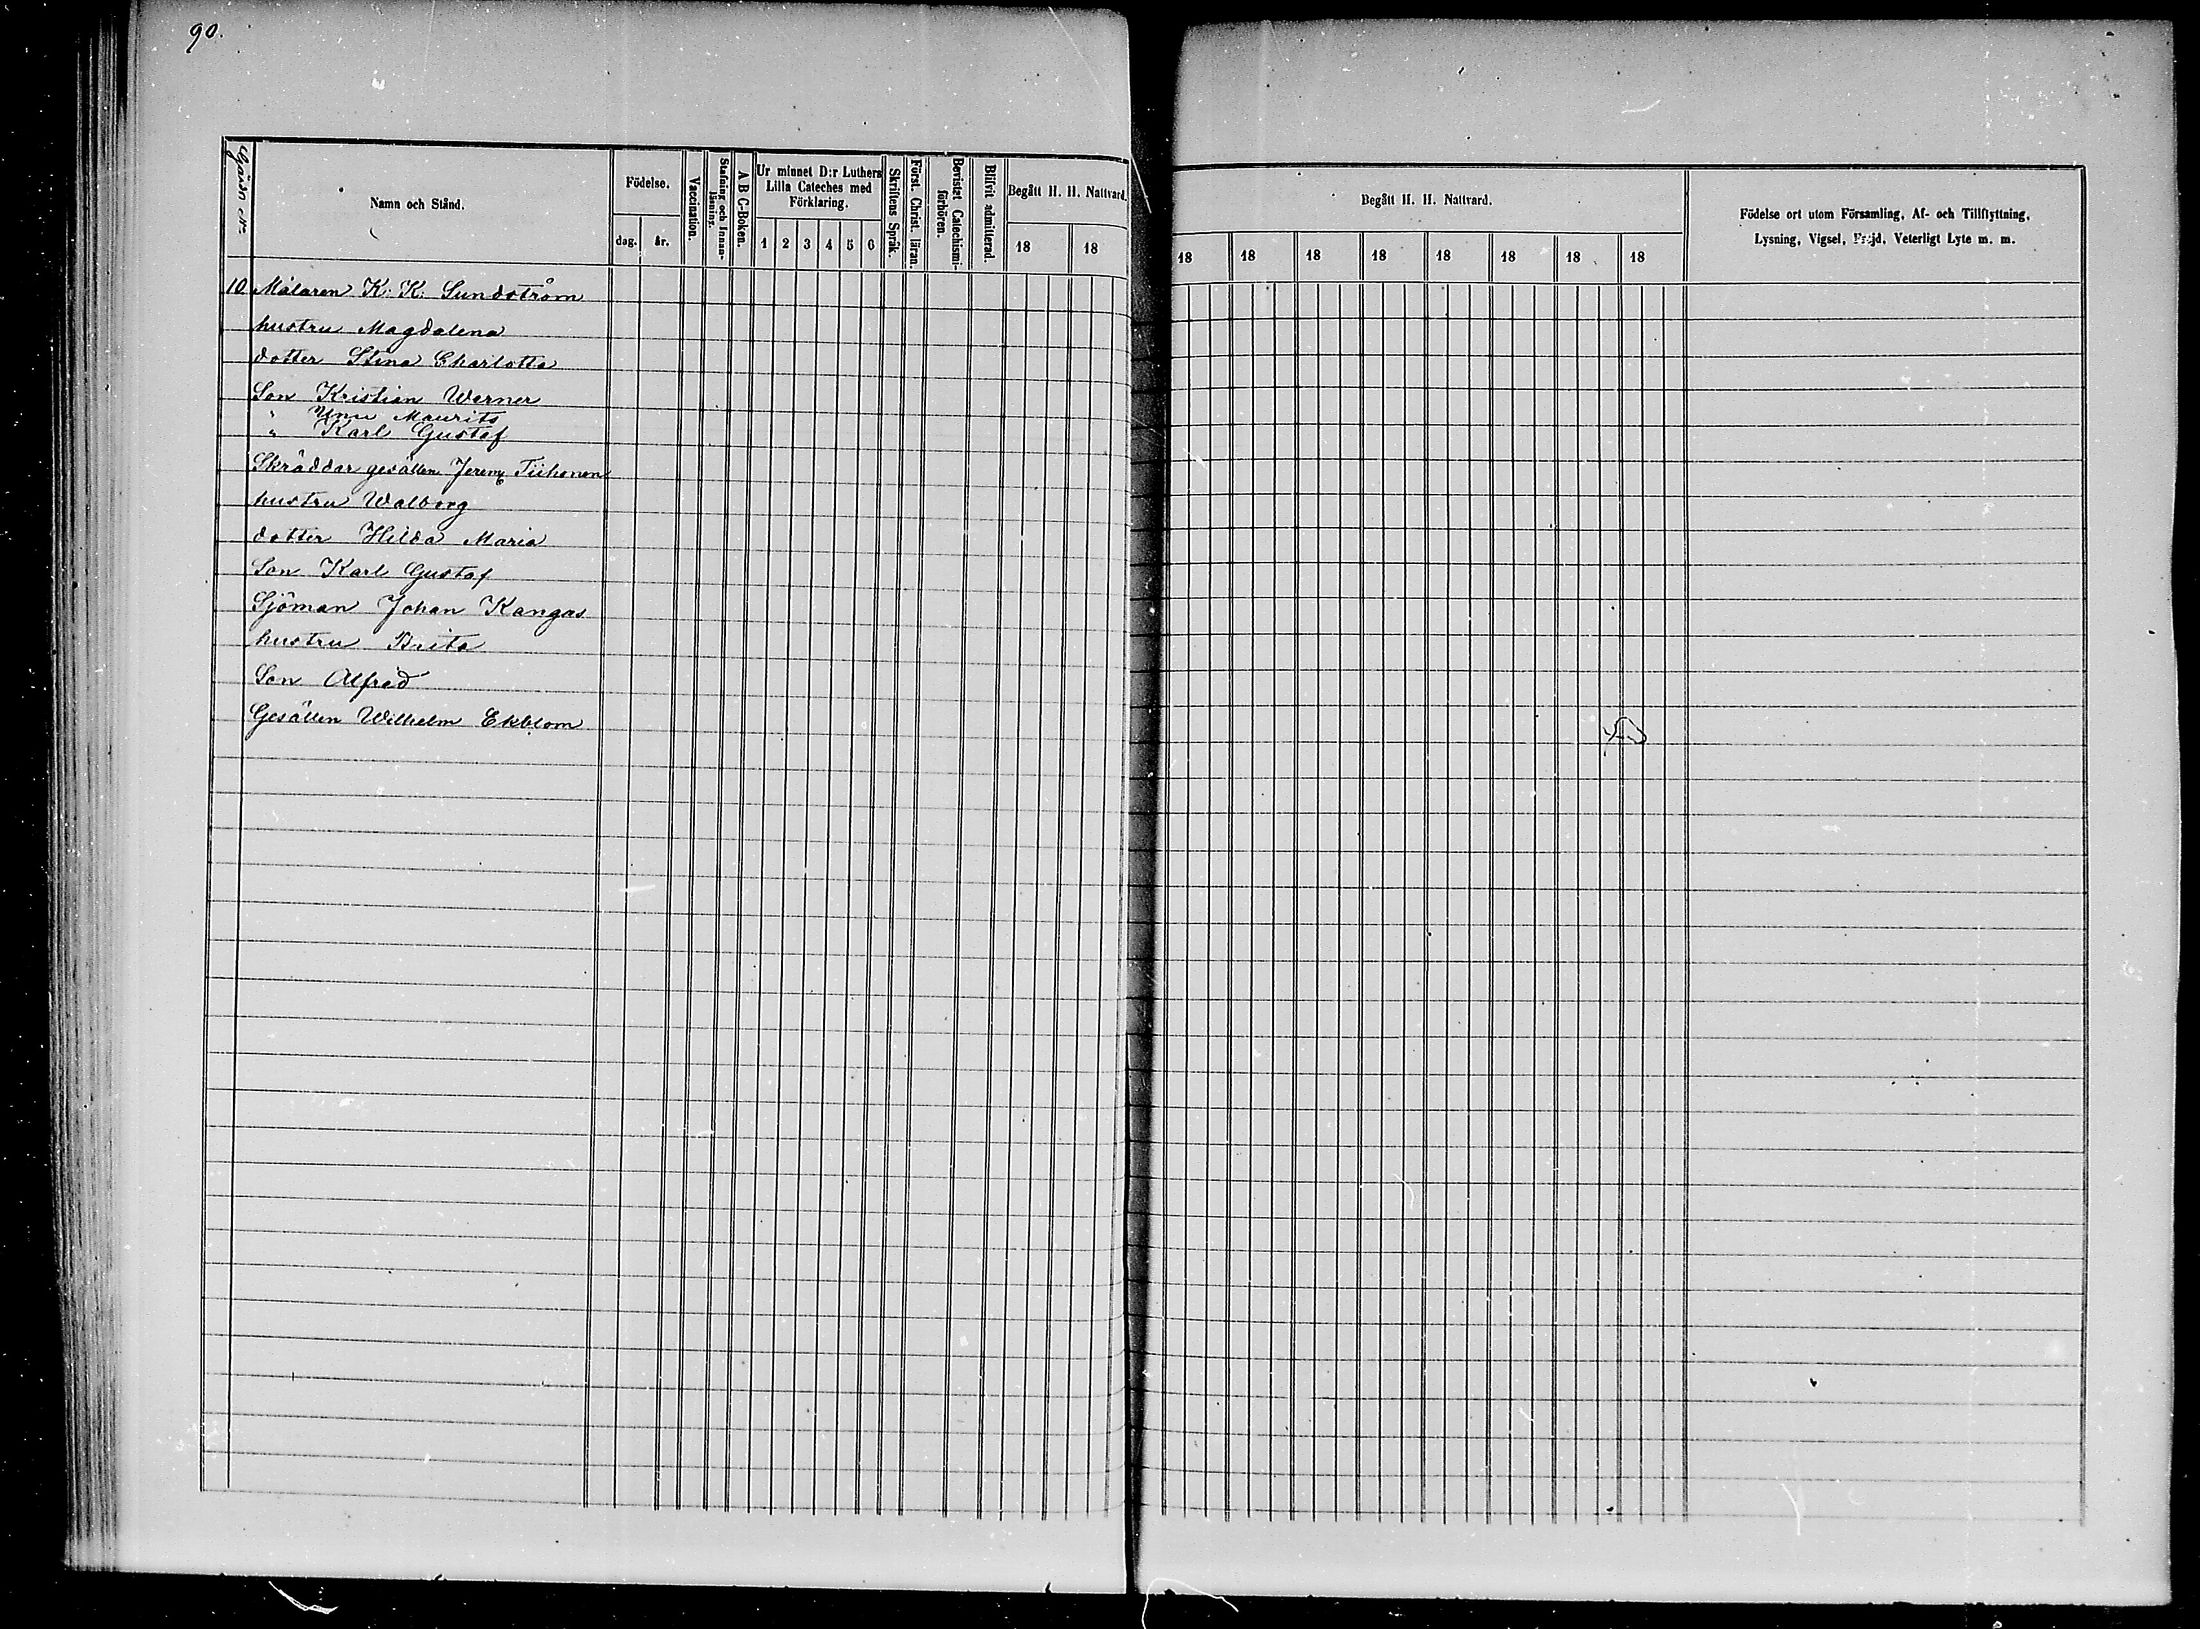 90.
Gården N:
Namn och Stånd.
Födelse.
dag. år.
Vaccination.
Stafning och Innan-
läsning.
A B C-Boken.
Ur minnet D:r Luthers
Lilla Cateches med
Förklaring.
1 2 3 4 5 6
Skriftens Språk.
Först. Christ. läran.
Bevistat Catechismi-
förhören.
Blifvit admitterad.
Begått H. H. Nattvard.
18 18
Begått H. H. Nattvard.
18 18 18 18 18 18 18 18
Födelse ort utom Församling, Af- och Tillflyttning,
Lysning, Vigsel, Frejd, Veterligt Lyte m. m.
10 Målaren K: K: Sundström
hustru Magdalena
dotter Stina Charlotta
Son Kristian Werner
" Uno Maurits
" Karl Gustaf
Skräddar gesällen Jerem Tiihonen
hustru Walborg
dotter Hilda Maria
Son Karl Gustaf
Sjöman Johan Kangas
hustru Brita
Son Alfred
Gesällen Wilhelm Ekblom